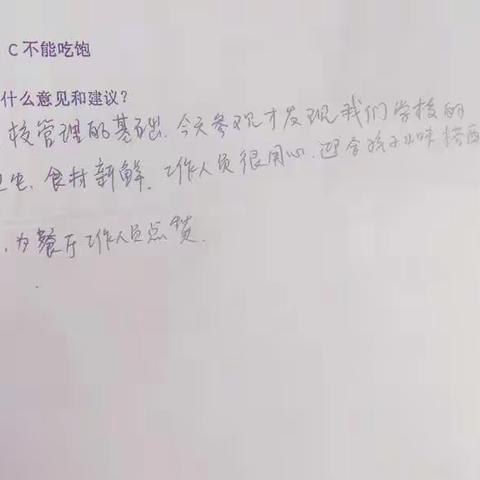 C 不能吃饱
什么意见和建议?
校管理的基础.今天参观才发现我们学校的
卫生、食材新鲜.工作人员很用心.迎合孩子口味搭配
,为餐厅工作人员点赞.